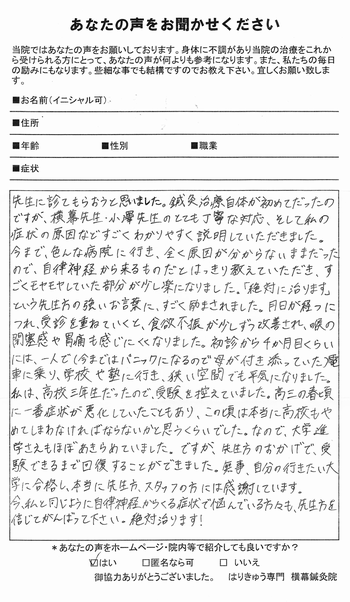 あなたの声をお聞かせください
当院ではあなたの声をお願いしております。身体に不調があり当院の治療をこれか
ら受けられる方にとって、あなたの声が何よりも参考になります。また、私たちの毎日
の励みにもなります。些細な事でも結構ですのでお教え下さい。宜しくお願い致しま
す。
■お名前(イニシャル可)
■住所
■年齢 ■性別 ■職業
■症状
先生に診てもらおうと思いました。鍼灸治療自体が初めてだったの
ですが、横幕先生・小澤先生のとても丁寧な対応、そして私の
症状の原因などすごくわかりやすく説明していただきました。
今まで、色んな病院に行き、全く原因が分からないままだった
ので、自律神経から来るものだとはっきり教えていただき、す
ごくモヤモヤしていた部分が少し楽になりました。「絶対に治ります」
という先生方の強いお言葉に、すごく励まされました。月日が経つに
つれ、受診を重ねていくと、食欲不振が少しずつ改善され、喉の
閉塞感や胃痛も感じにくくなりました。初診から4か月目くらい
には、一人で(今まではパニックになるので母が付き添っていた)電
車に乗り、学校や塾に行き、狭い空間でも平気になりました。
私は、高校三年生だったので、受験を控えていました。高三の春頃
に一番症状が悪化していたこともあり、この頃は本当に高校もや
めてしまわなければならないかと思うくらいでした。なので、大学進
学さえもほぼあきらめていました。ですが、先生方のおかげで、受
験できるまで回復することができました。無事、自分の行きたい大
学に合格し、本当に先生方、スタッフの方には感謝しています。
今、私と同じように自律神経からくる症状で悩んでいる方々も、先生方を
信じてがんばって下さい。絶対治ります!
*あなたの声をホームページ・院内等で紹介しても良いですか?
☑はい □匿名なら可 □いいえ
御協力ありがとうございました。 はりきゅう専門 横幕鍼灸院